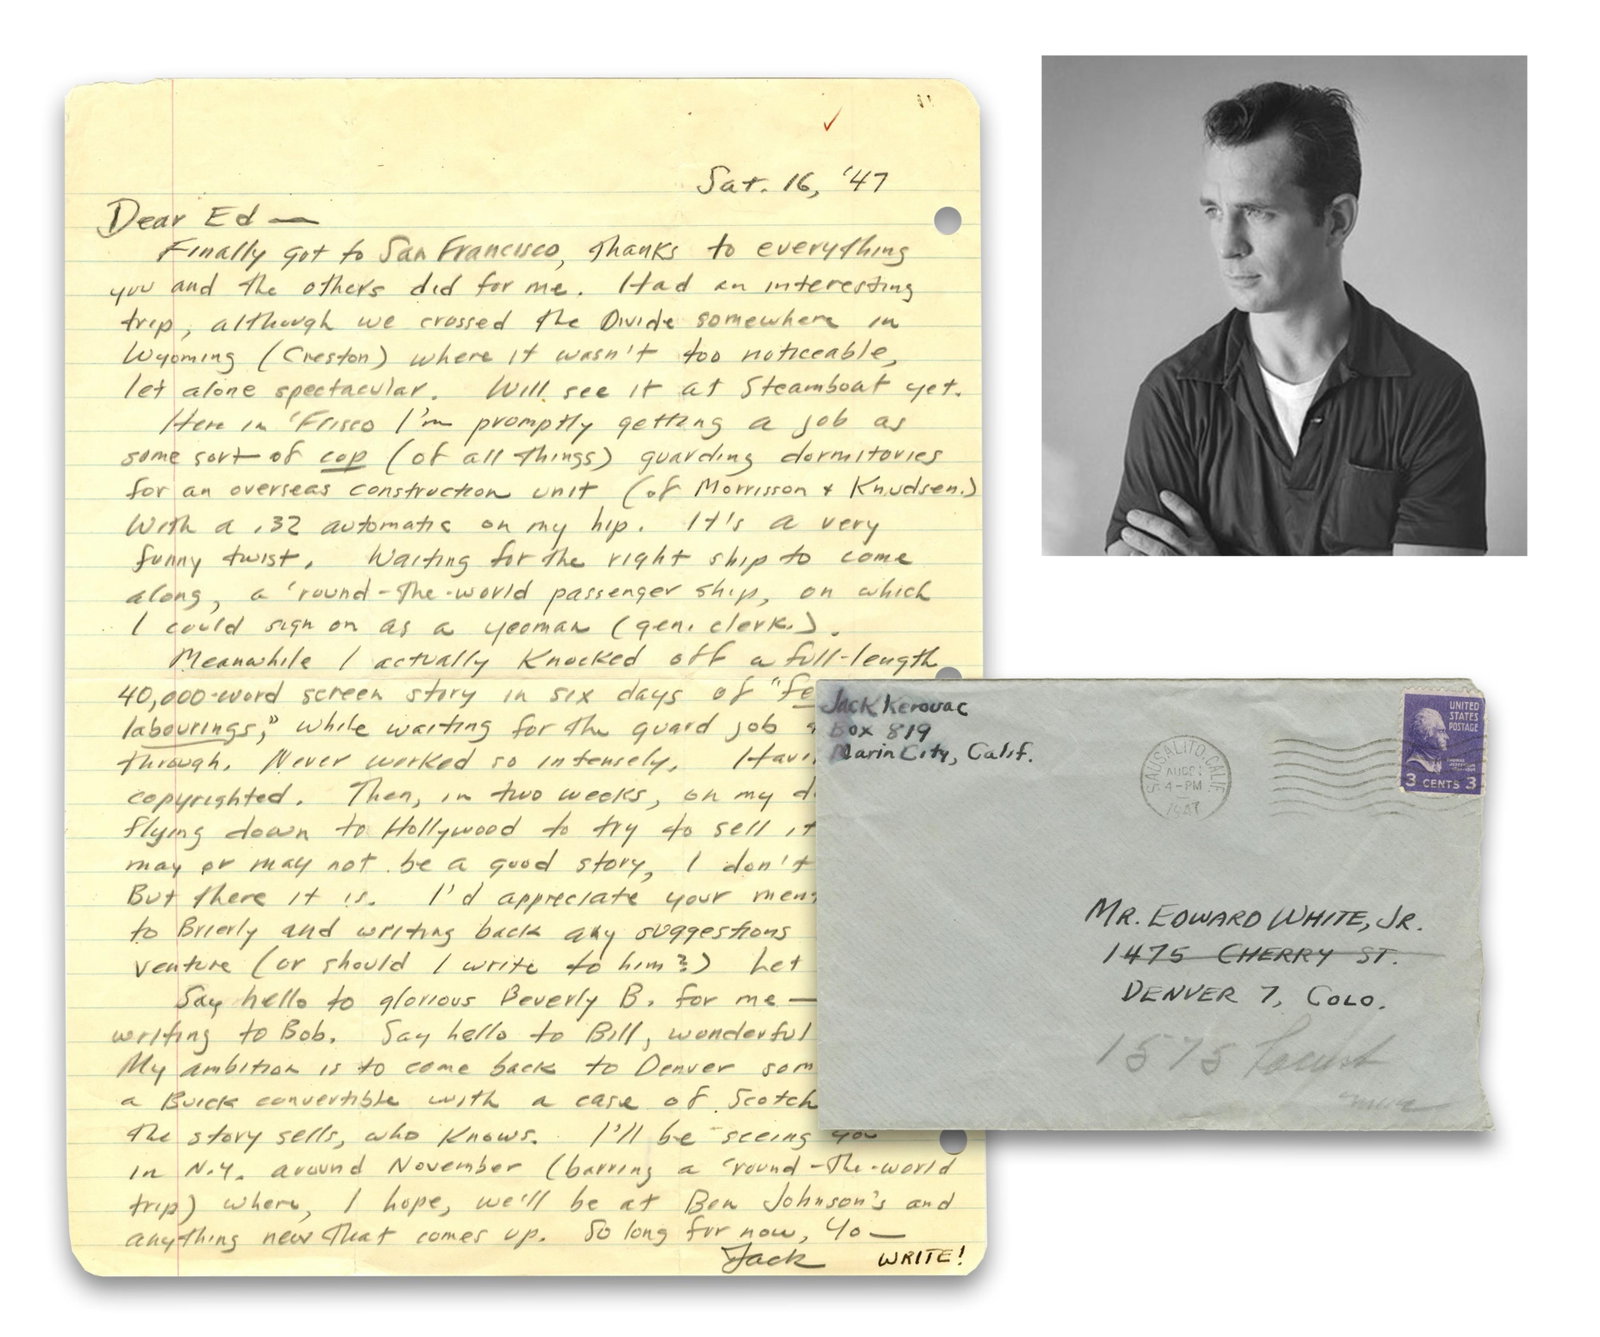 Sat. 16, '47
Dear Ed —
Finally got to San Francisco, thanks to everything
you and the others did for me. Had an interesting
trip, although we crossed the Divide somewhere in
Wyoming (Creston) where it wasn't too noticeable,
let alone spectacular. Will see it at Steamboat yet.
Here in 'Frisco I'm promptly getting a job as
some sort of cop (of all things) guarding dormitories
for an overseas construction unit (of Morrisson & Knudsen.)
With a .32 automatic on my hip. It's a very
funny twist. Waiting for the right ship to come
along, a 'round-the-world passenger ship, on which
I could sign on as a yeoman (gen. clerk.).
Meanwhile I actually knocked off a full-length
40,000-word screen story in six days of "fe
labourings," while waiting for the guard job
through. Never worked so intensely. Havi
copyrighted. Then, in two weeks, on my d
flying down to Hollywood to try to sell it
may or may not be a good story, I don't
But there it is. I'd appreciate your men
to Brierly and writing back any suggestions
venture (or should I write to him?) Let
Say hello to glorious Beverly B. for me —
writing to Bob. Say hello to Bill, wonderful
My ambition is to come back to Denver som
a Buick convertible with a case of Scotch
the story sells, who knows. I'll be seeing you
in N.Y. around November (barring a 'round-the-world
trip) where, I hope, we'll be at Ben Johnson's and
anything new that comes up. So long for now, Yo —
Jack WRITE!
Jack Kerouac
Box 819
Marin City, Calif.
SAUSALITO, CALIF.
AUG
4-PM
1947
UNITED
STATES
POSTAGE
THOMAS JEFFERSON
3 CENTS 3
MR. EDWARD WHITE, JR.
1475 CHERRY ST.
DENVER 7, COLO.
1575 Locust